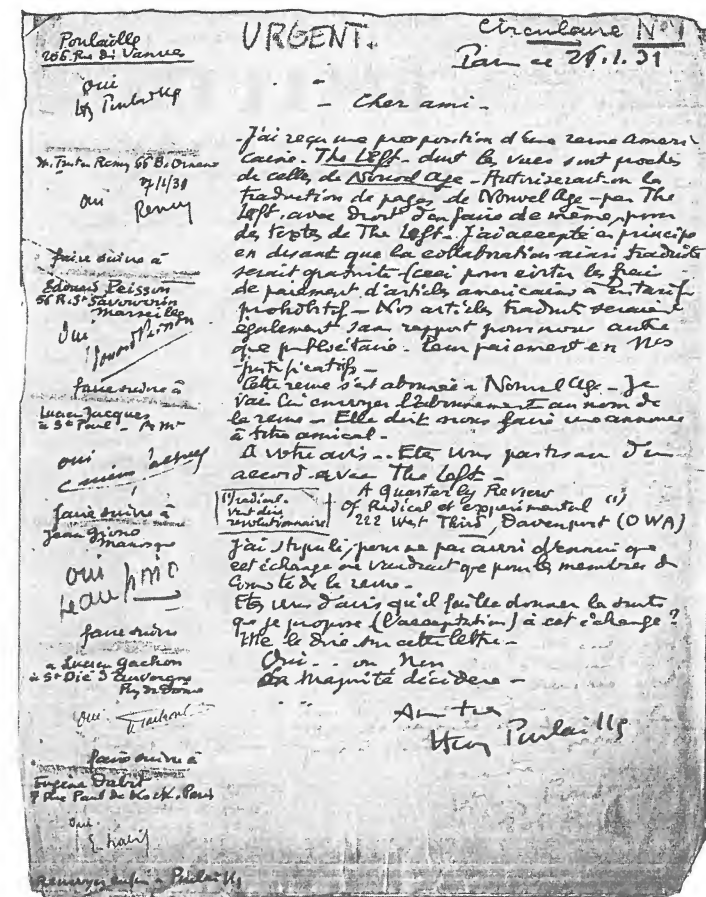 URGENT.
Circulaire N° 1
Paris ce 26.1.31
Poulaille
206. Rue de Vanves
oui
Hy Poulaille
M. Tristan Remy 66 B. Ornano
7/1/31
oui
Remy
faire suivre à
Edouard Peisson
56 R. St Savournin
Marseille
Oui
Edouard Peisson
faire suivre à
Lucien Jacques
à St Paul - A. Mmes
oui
Lucien Jacques
faire suivre à
Jean Giono
Manosque
oui
Jean Giono
faire suivre
à Lucien Gachon
à St Dié d'Auvergne
Puy de Dome
oui
Gachon
faire suivre à
Eugène Dabit
7 Rue Paul de Kock. Paris
oui.
E. Dabit
Renvoyer enfin à Poulaille
- Cher ami -
- J'ai reçu une proposition d'une revue améri
caine. The Left - dont les vues sont proches
de celles de Nouvel Age - Autorisation la
traduction de pages de Nouvel Age - par The
Left, avec droit d'en faire de même, pour
des textes de The Left. J'ai accepté en principe
en disant que la collaboration ainsi traduite
serait gratuite (ceci pour éviter les frais
de paiement d'articles américains à un tarif
prohibitif - Nos articles traduits seraient
également sans rapport pour nous autre
que publicitaire. Leur paiement en Nos
justificatifs -
Cette revue s'est abonnée à Nouvel Age - Je
vais lui envoyer l'abonnement au nom de
la revue - Elle doit nous faire une annonce
à titre amical -
A votre avis -. Etes vous partisan d'un
accord avec The Left -
A Quarterly Review
Of Radical et experimental (1)
222 West Third, Davenport (OWA)
(1) radical.
veut dire
révolutionnaire
J'ai stipulé, pour ne pas avoir d'ennui que
cet échange ne vaudrait que pour les membres du
Comité de la revue -
Etes vous d'avis qu'il faille donner la suite
que je propose (l'acceptation) à cet échange?
Me le dire sur cette lettre -
Oui .. ou Non
La Majorité décidera -
Henry Poulaille